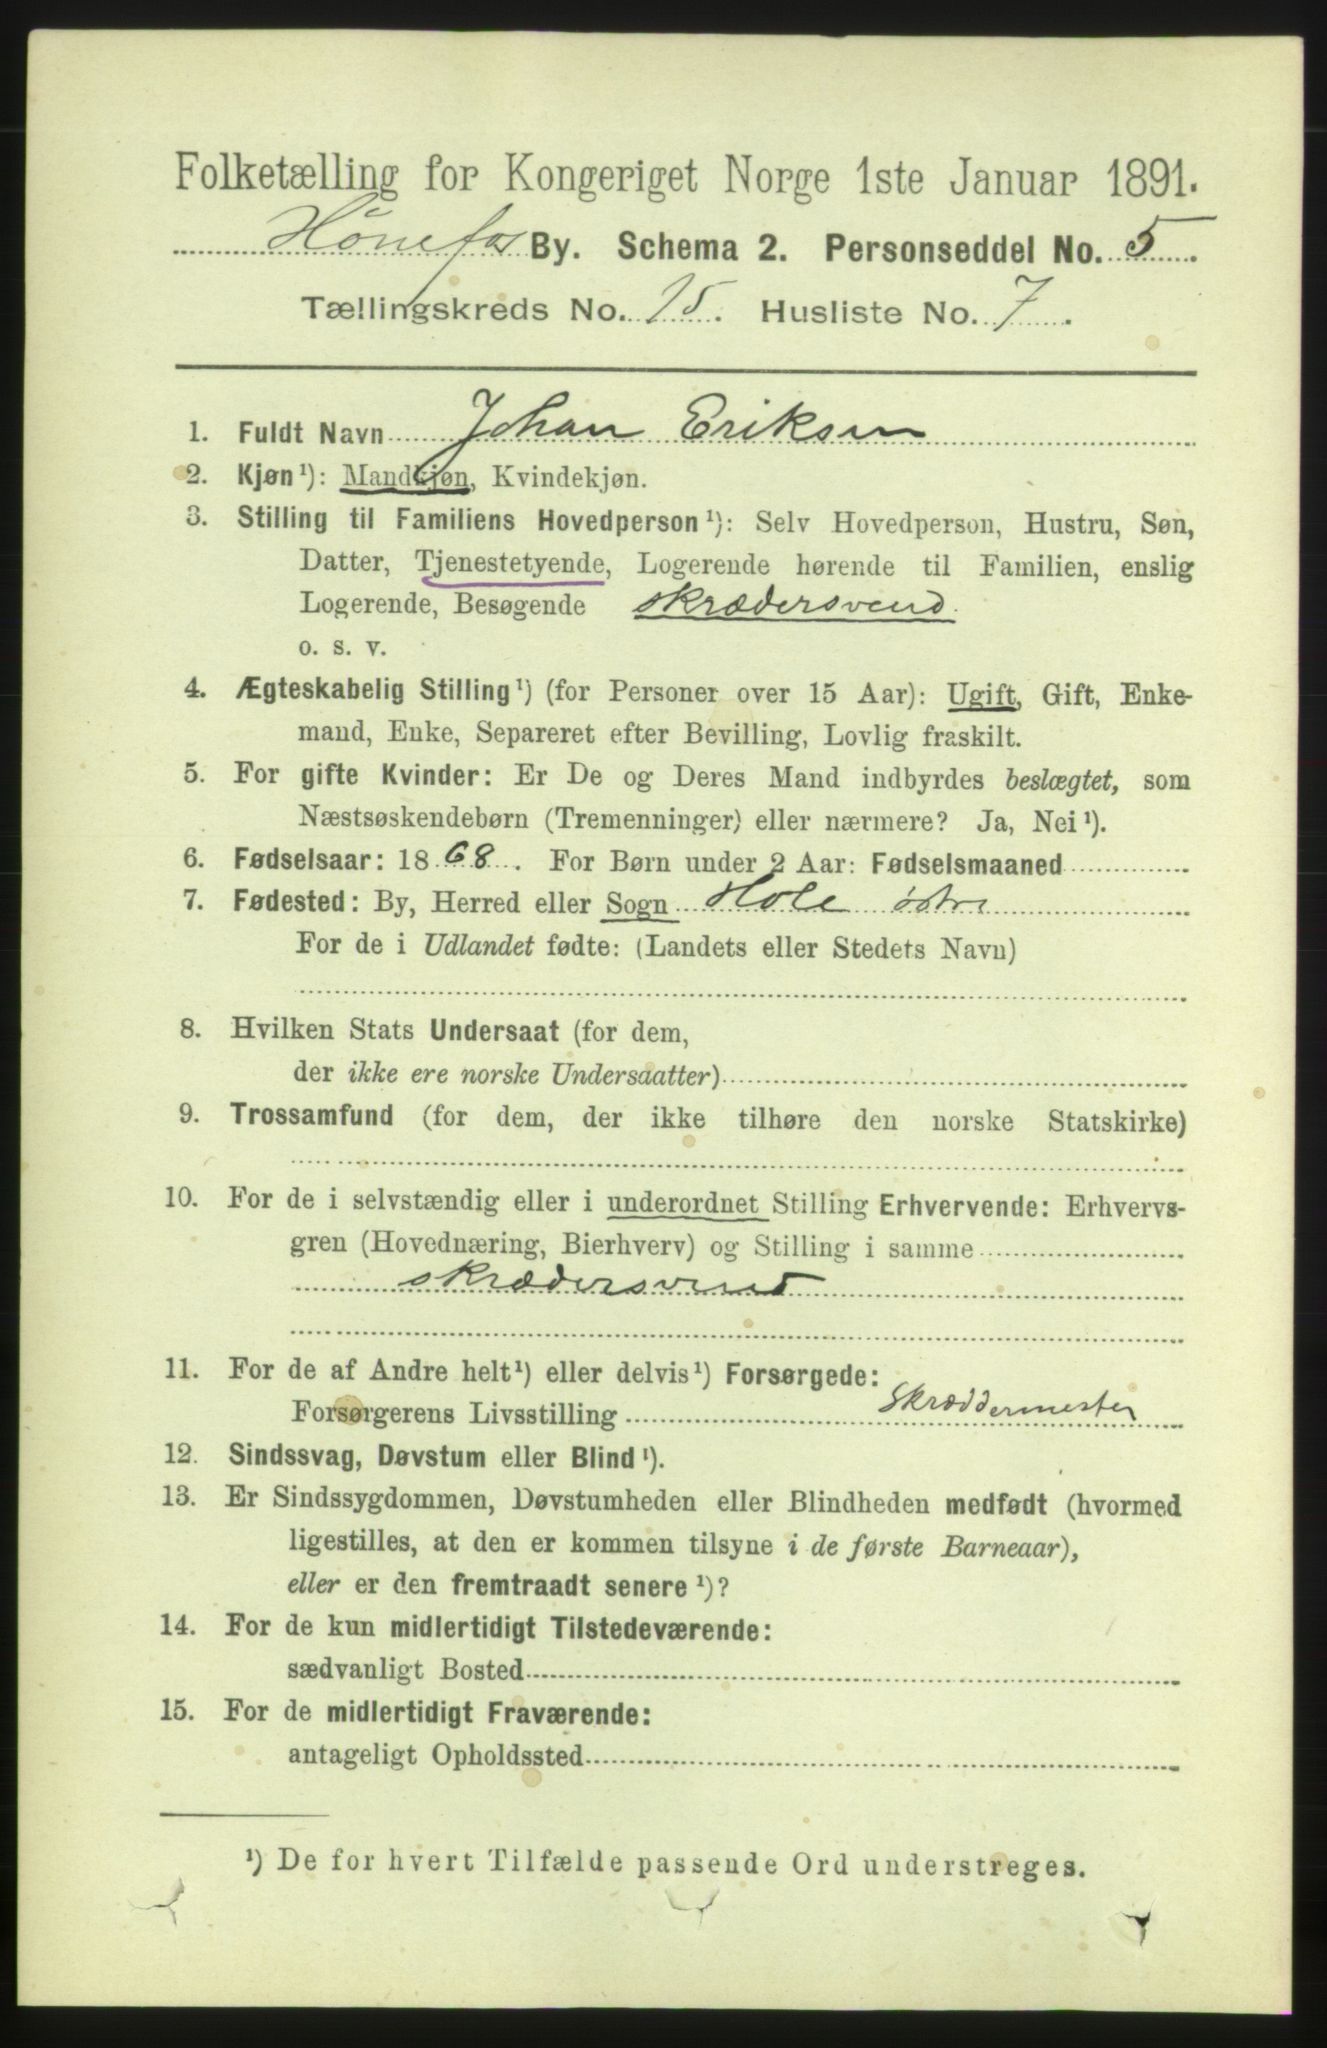 Folketælling for Kongeriget Norge 1ste Januar 1891.
Hønefos By. Schema 2. Personseddel No. 5
Tællingskreds No. 15. Husliste No. 7.
1. Fuldt Navn Johan Eriksen
2. Kjøn¹): Mandkjøn, Kvindekjøn.
3. Stilling til Familiens Hovedperson¹): Selv Hovedperson, Hustru, Søn,
Datter, Tjenestetyende, Logerende hørende til Familien, enslig
Logerende, Besøgende skrædersvend.
o. s. v.
4. Ægteskabelig Stilling¹) (for Personer over 15 Aar): Ugift, Gift, Enke-
mand, Enke, Separeret efter Bevilling, Lovlig fraskilt.
5. For gifte Kvinder: Er De og Deres Mand indbyrdes beslægtet, som
Næstsøskendebørn (Tremenninger) eller nærmere? Ja, Nei¹).
6. Fødselsaar: 1868. For Børn under 2 Aar: Fødselsmaaned
7. Fødested: By, Herred eller Sogn Hole østre
For de i Udlandet fødte: (Landets eller Stedets Navn)
8. Hvilken Stats Undersaat (for dem,
der ikke ere norske Undersaatter)
9. Trossamfund (for dem, der ikke tilhøre den norske Statskirke)
10. For de i selvstændig eller i underordnet Stilling Erhvervende: Erhvervs-
gren (Hovednæring, Bierhverv) og Stilling i samme
skrædersvend
11. For de af Andre helt¹) eller delvis¹) Forsørgede:
Forsørgerens Livsstilling Skræddermester
12. Sindssvag, Døvstum eller Blind¹).
13. Er Sindssygdommen, Døvstumheden eller Blindheden medfødt (hvormed
ligestilles, at den er kommen tilsyne i de første Barneaar),
eller er den fremtraadt senere¹)?
14. For de kun midlertidigt Tilstedeværende:
sædvanligt Bosted
15. For de midlertidigt Fraværende:
antageligt Opholdssted
¹) De for hvert Tilfælde passende Ord understreges.